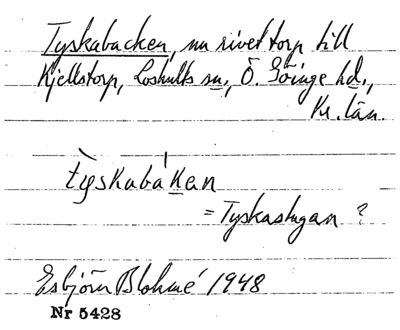 Tyskabacken, nu rivet torp till
Kjellstorp, Loshults sn., Ö. Göinge hd.,
Kr. län.
tỳskabákan
= Tyskastugan ?
Esbjörn Blohmé 1948
Nr 5428